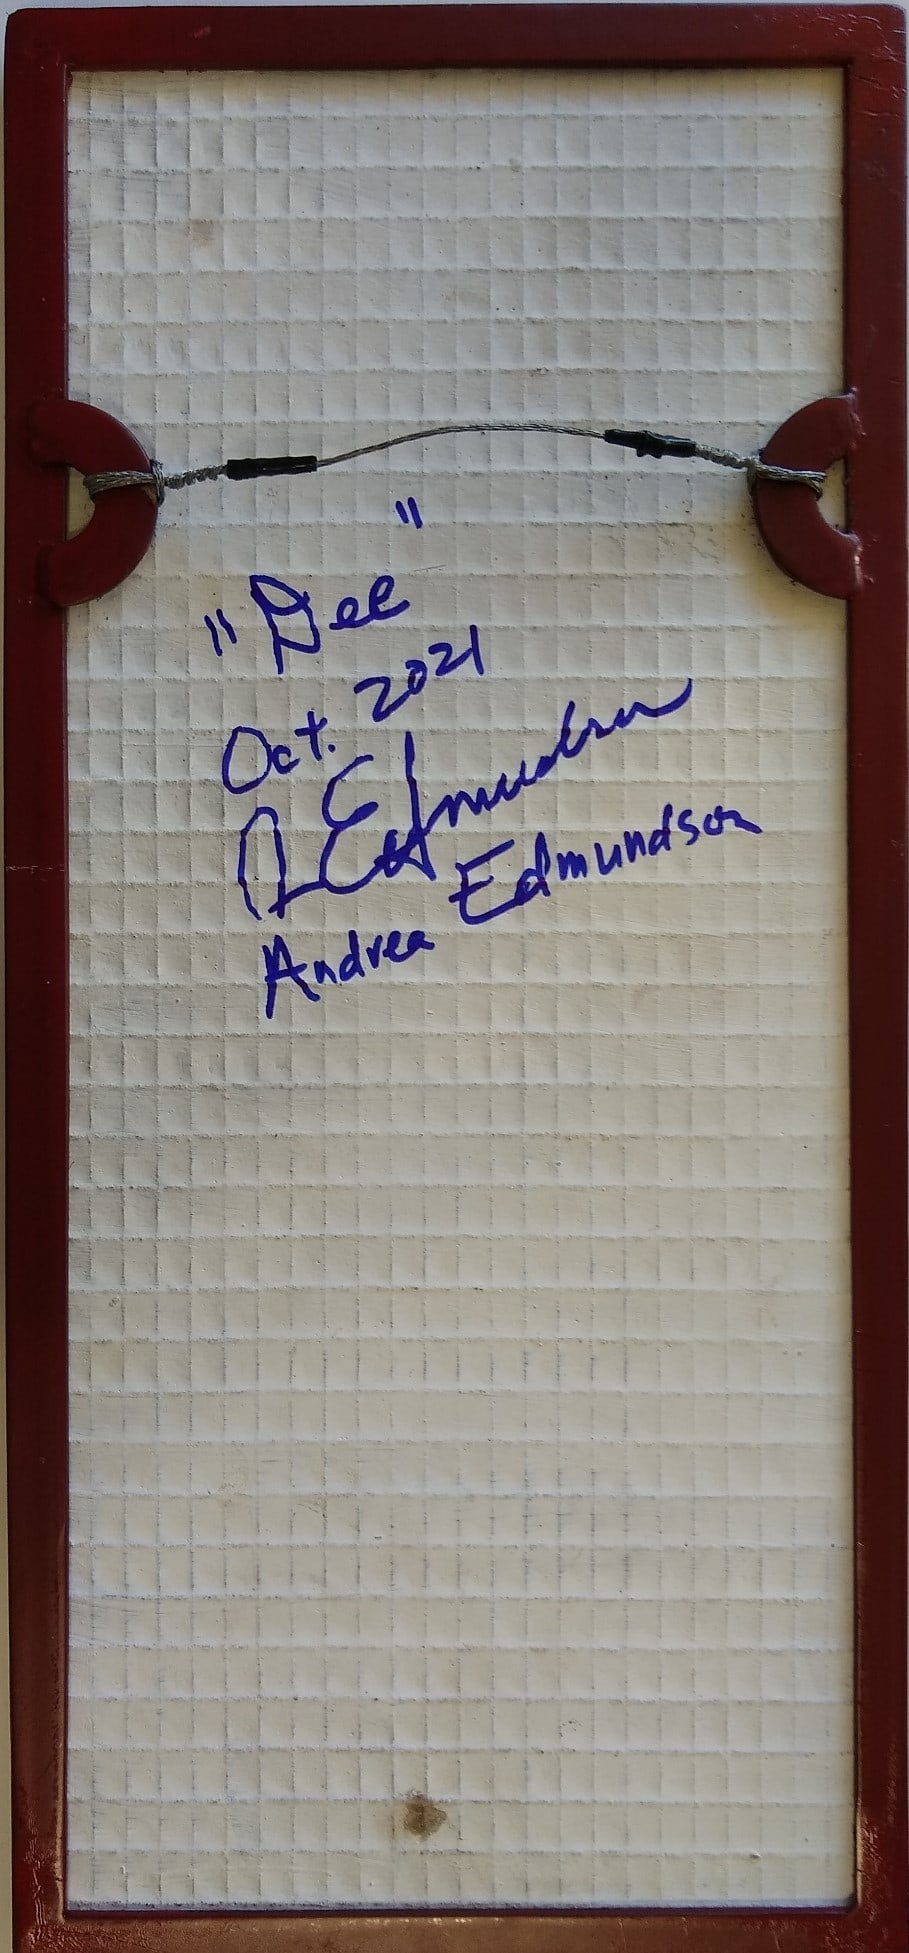 "Dee"
Oct. 2021
A Edmundson
Andrea Edmundson